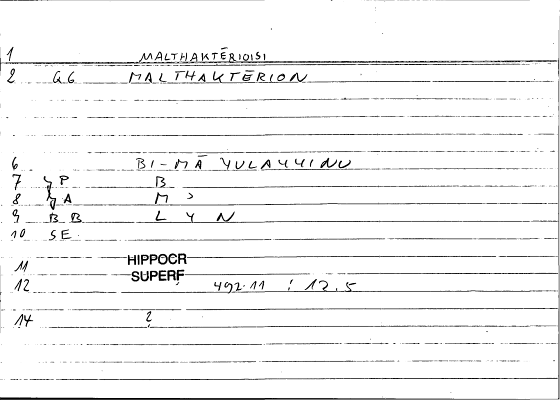 1 MALTHAKTĒRIOISI
2 G6 MALTHAKTĒRION
6 BI-MĀ YULAYYINU
7 ʿP B
8 ʿA M ʾ
9 BB L Y N
10 SE
11 HIPPOCR
SUPERF
12 492.11 : 12.5
14 2